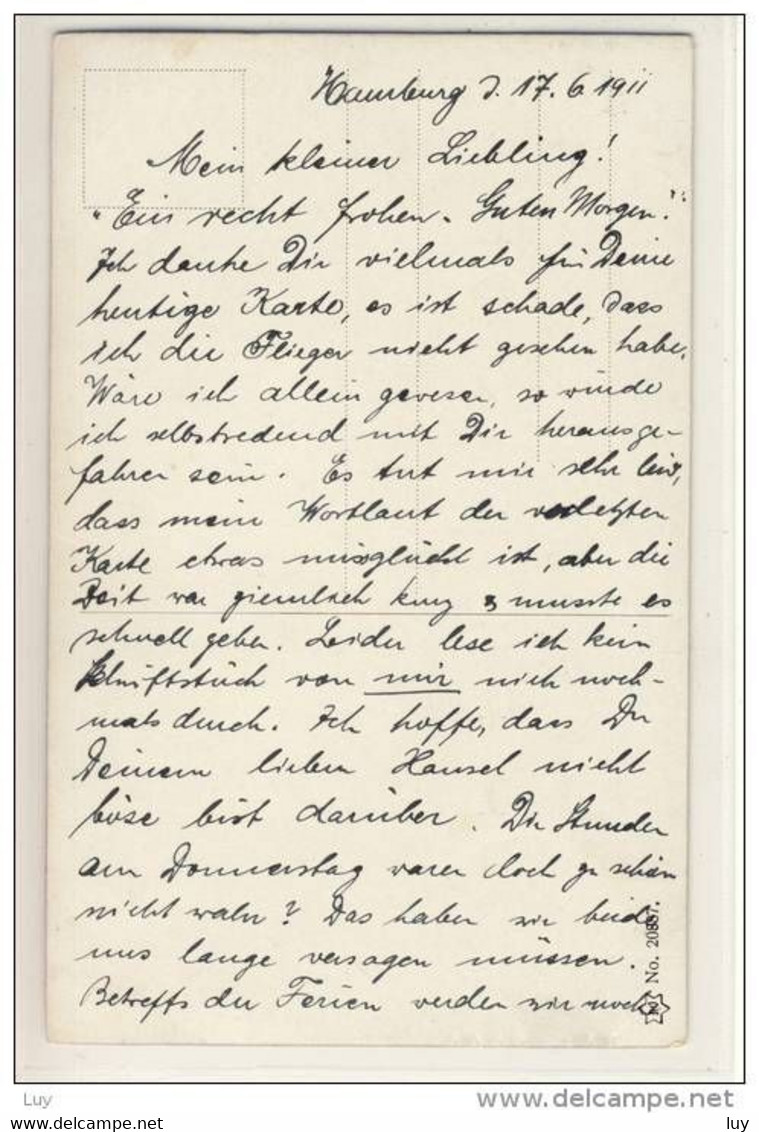 Hamburg d. 17.6.1911
Mein kleiner Liebling!
"Ein recht frohen Guten Morgen!"
Ich danke Dir vielmals für Deine
heutige Karte, es ist schade, dass
ich die Flieger nicht gesehen habe.
Wäre ich allein gewesen, so würde
ich selbstredend mit Dir herausge-
fahren sein. Es tut mir sehr leid,
dass mein Wortlaut der letzten
Karte etwas missglückt ist, aber die
Zeit war ziemlich kurz & musste es
schnell gehen. Leider lese ich kein
Schriftstück von mir nich noch-
mals durch. Ich hoffe, dass Du
Deinem lieben Hansel nicht
böse bist darüber. Die Stunden
am Donnerstag waren doch zu schön
nicht wahr? Das haben wir beide
uns lange versagen müssen.
Betreffs der Ferien werden wir noch
No. 20887.
Luy
www.delcampe.net
Luy
luy